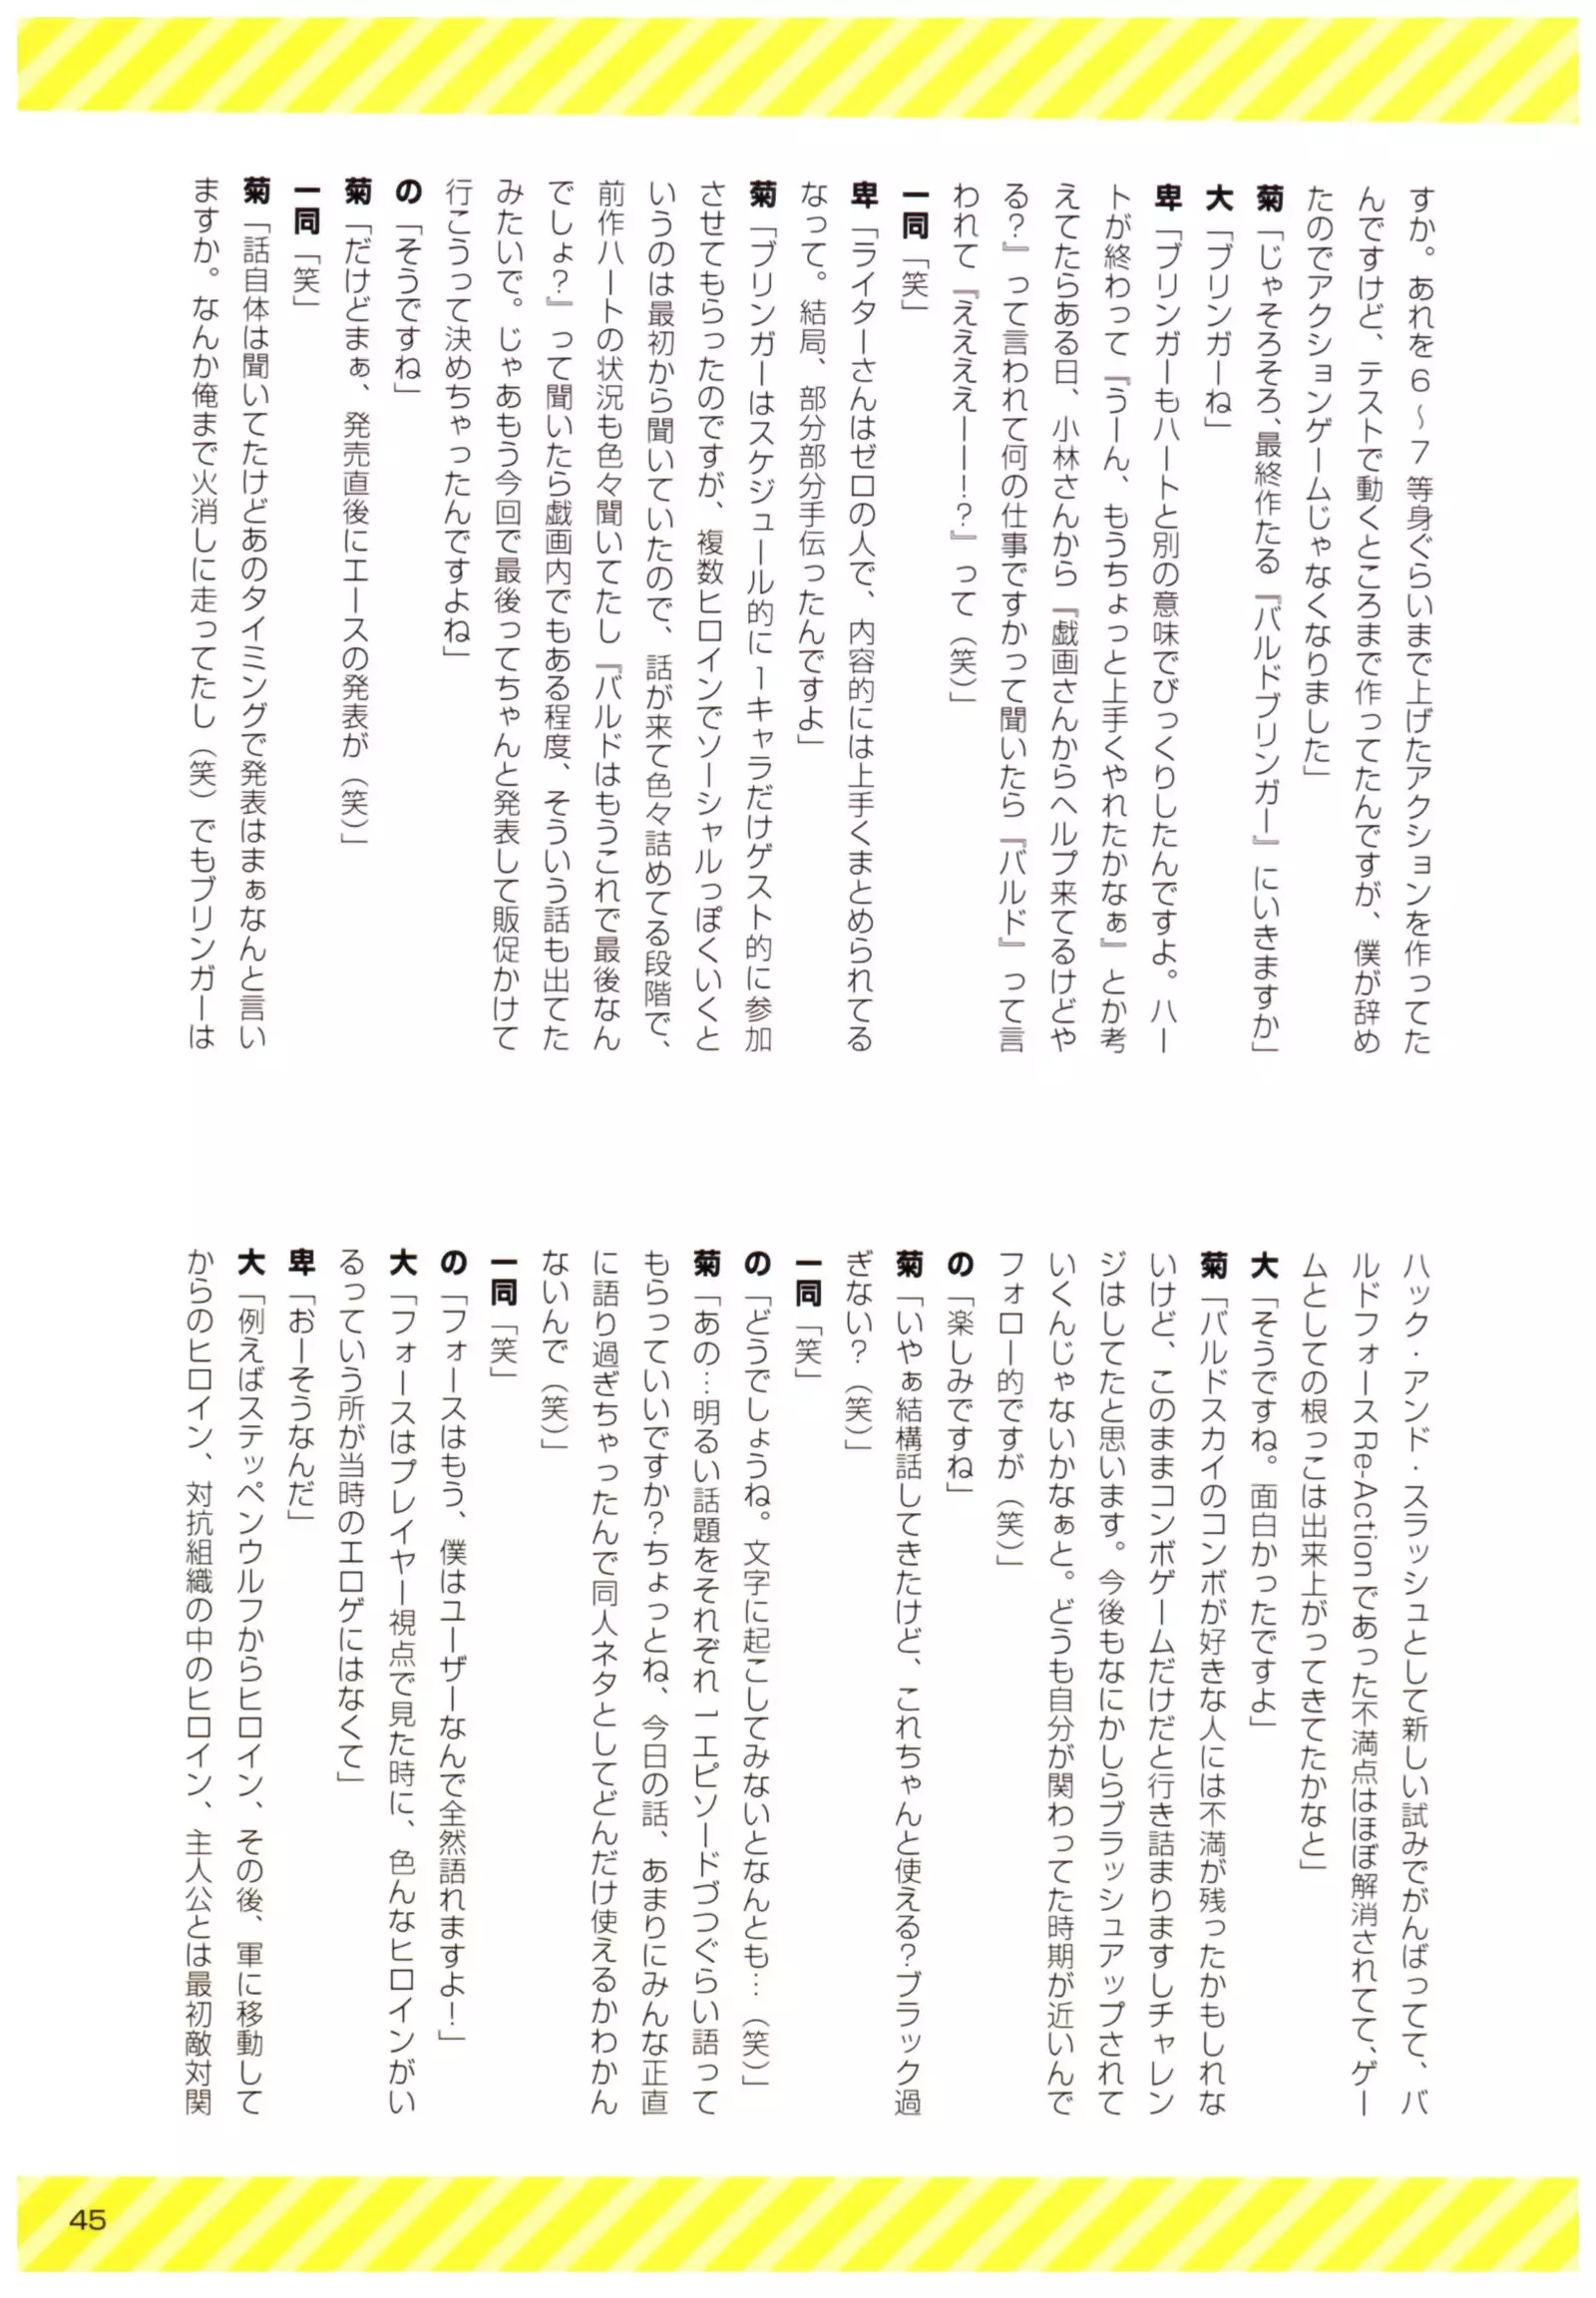 すか。あれを6～7等身ぐらいまで上げたアクションを作ってた
んですけど、テストで動くところまで作ってたんですが、僕が辞め
たのでアクションゲームじゃなくなりました」
菊「じゃそろそろ、最終作たる『バルドブリンガー』にいきますか」
大「ブリンガーね」
卑「ブリンガーもハートと別の意味でびっくりしたんですよ。ハー
トが終わって『うーん、もうちょっと上手くやれたかなぁ』とか考
えてたらある日、小林さんから『戯画さんからヘルプ来てるけどや
る？』って言われて何の仕事ですかって聞いたら『バルド』って言
われて『ええええーー！？』って（笑）」
一同「笑」
卑「ライターさんはゼロの人で、内容的には上手くまとめられてる
なって。結局、部分部分手伝ったんですよ」
菊「ブリンガーはスケジュール的に1キャラだけゲスト的に参加
させてもらったのですが、複数ヒロインでソーシャルっぽくいくと
いうのは最初から聞いていたので、話が来て色々詰めてる段階で、
前作ハートの状況も色々聞いてたし『バルドはもうこれで最後なん
でしょ？』って聞いたら戯画内でもある程度、そういう話も出てた
みたいで。じゃあもう今回で最後ってちゃんと発表して販促かけて
行こうって決めちゃったんですよね」
の「そうですね」
菊「だけどまぁ、発売直後にエースの発表が（笑）」
一同「笑」
菊「話自体は聞いてたけどあのタイミングで発表はまぁなんと言い
ますか。なんか俺まで火消しに走ってたし（笑）でもブリンガーは
ハック・アンド・スラッシュとして新しい試みでがんばってて、バ
ルドフォースRe-Actionであった不満点はほぼ解消されてて、ゲー
ムとしての根っこは出来上がってきてたかなと」
大「そうですね。面白かったですよ」
菊「バルドスカイのコンボが好きな人には不満が残ったかもしれな
いけど、このままコンボゲームだけだと行き詰まりますしチャレン
ジはしてたと思います。今後もなにかしらブラッシュアップされて
いくんじゃないかなぁと。どうも自分が関わってた時期が近いんで
フォロー的ですが（笑）」
の「楽しみですね」
菊「いやぁ結構話してきたけど、これちゃんと使える？ブラック過
ぎない？（笑）」
一同「笑」
の「どうでしょうね。文字に起こしてみないとなんとも…（笑）」
菊「あの…明るい話題をそれぞれ1エピソードづつぐらい語って
もらっていいですか？ちょっとね、今日の話、あまりにみんな正直
に語り過ぎちゃったんで同人ネタとしてどんだけ使えるかわかん
ないんで（笑）」
一同「笑」
の「フォースはもう、僕はユーザーなんで全然語れますよ！」
大「フォースはプレイヤー視点で見た時に、色んなヒロインがい
るっていう所が当時のエロゲにはなくて」
卑「おーそうなんだ」
大「例えばステッペンウルフからヒロイン、その後、軍に移動して
からのヒロイン、対抗組織の中のヒロイン、主人公とは最初敵対関
45